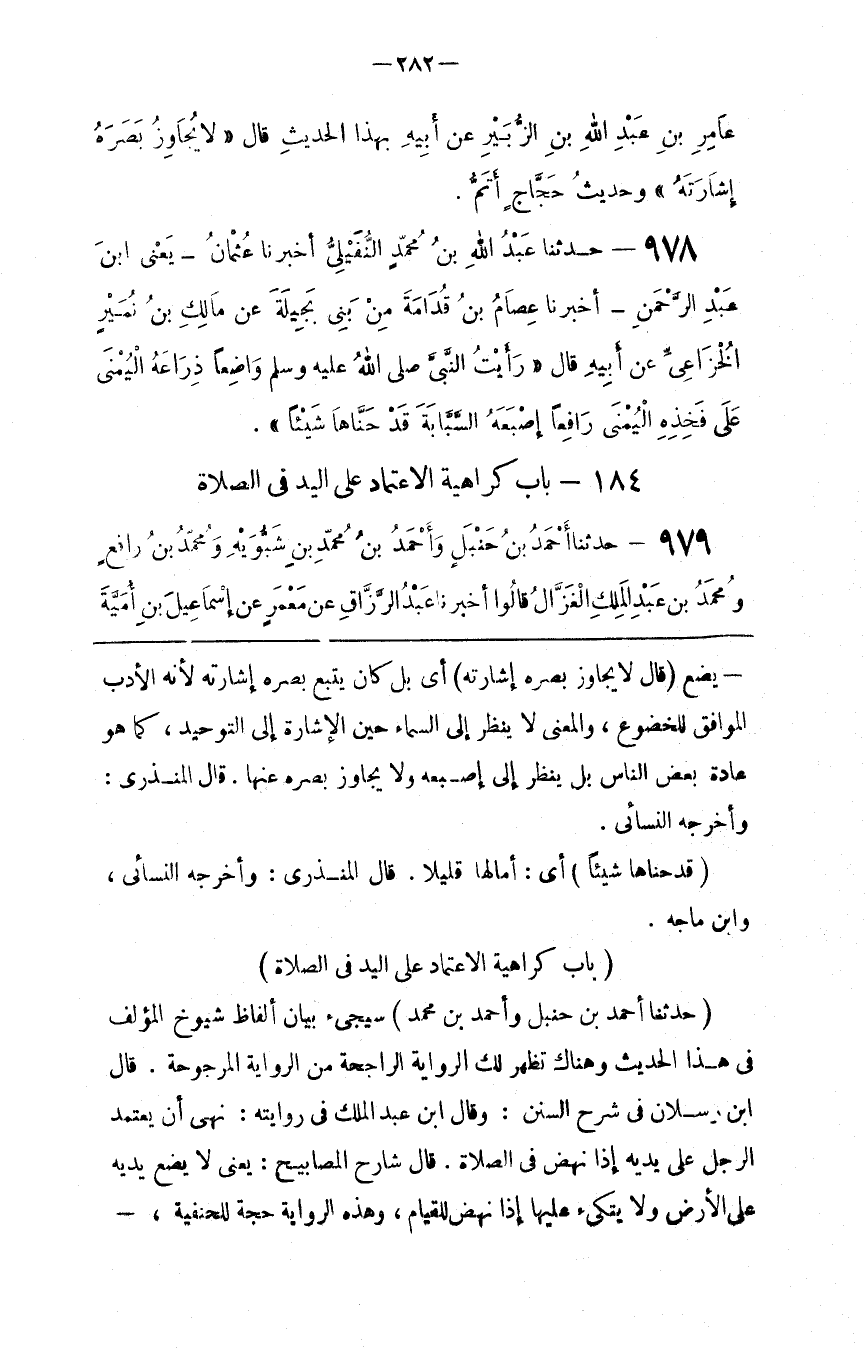 — ٢٨٢ —
عَامِرِ بنِ عَبْدِ اللهِ بنِ الزُّبَيْرِ عن أَبِيهِ بهذا الحديثِ قال « لا يُجَاوِزُ بَصَرَهُ
إِشَارَتَهُ » وحديثُ حَجَّاجٍ أَتَمُّ .
٩٧٨ — حـدثنا عَبْدُ اللهِ بنُ مُحمَّدٍ النُّفَيْلِيُّ أخبرنا عُثْمَانُ – يَعْنى ابنَ
عَبْدِ الرَّحْمَنِ – أخبرنا عِصَامُ بنُ قُدَامَةَ مِنْ بَنِى بَجِيلَةَ عن مَالِكِ بنِ نُمَـيْرٍ
الْخُزَاعِىِّ عن أَبِيهِ قال « رَأَيْتُ النَّبىَّ صلى اللهُ عليه وسلم وَاضِعاً ذِرَاعَهُ الْيُمْنَى
عَلَى فَخِذِهِ الْيُمْنَى رَافِعاً إِصْبَعَهُ السَّبَّابَةَ قَدْ حَنَّاهَا شَيْئاً » .
١٨٤ – باب كراهية الاعتماد على اليد فى الصلاة
٩٧٩ – حدثنا أَحْمَدُ بنُ حَنْبَلٍ وَأَحْمَدُ بنُ مُحمَّدِ بنِ شَبُّوَيْهِ وَمُحمَّدُ بنُ رافِعٍ
ومُحمَّدُ بن عَبْدِ الْمَلِكِ الْغَزَّالُ قالُوا أخبرنا عَبْدُ الرَّزَّاقِ عن مَعْمَرٍ عن إِسْمَاعِيلَ بنِ أُمَيَّةَ
— يضع ( قال لا يجاوز بصره إشارته ) أى بل كان يتبع بصره إشارته لأنه الأدب
الموافق للخضوع ، والمعنى لا ينظر إلى السماء حين الإشارة إلى التوحيد ، كما هو
عادة بعض الناس بل ينظر إلى إصـبعه ولا يجاوز بصره عنها . قال المنـذرى :
وأخرجه النسائى .
( قد حناها شيئاً ) أى : أمالها قليلا . قال المنـذرى : وأخرجه النسائى ،
وابن ماجه .
( باب كراهية الاعتماد على اليد فى الصلاة )
( حدثنا أحمد بن حنبل وأحمد بن محمد ) سيجىء بيان ألفاظ شيوخ المؤلف
فى هـذا الحديث وهناك تظهر لك الرواية الراجحة من الرواية المرجوحة . قال
ابن رسـلان فى شرح السنن : وقال ابن عبد الملك فى روايته : نهى أن يعتمد
الرجل على يديه إذا نهض فى الصلاة . قال شارح المصابيح : يعنى لا يضع يديه
على الأرض ولا يتكىء عليها إذا نهض للقيام ، وهذه الرواية حجة للحنفية ، —